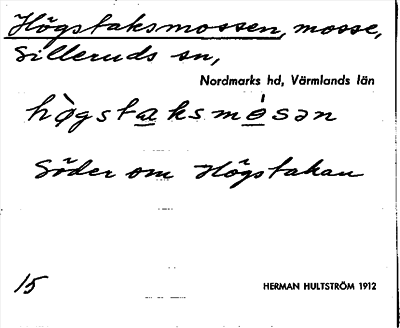 Högstaksmossen, mosse,
Silleruds sn,
Nordmarks hd, Värmlands län
hø̀gstaksmósən
Söder om Högstakan
15
HERMAN HULTSTRÖM 1912